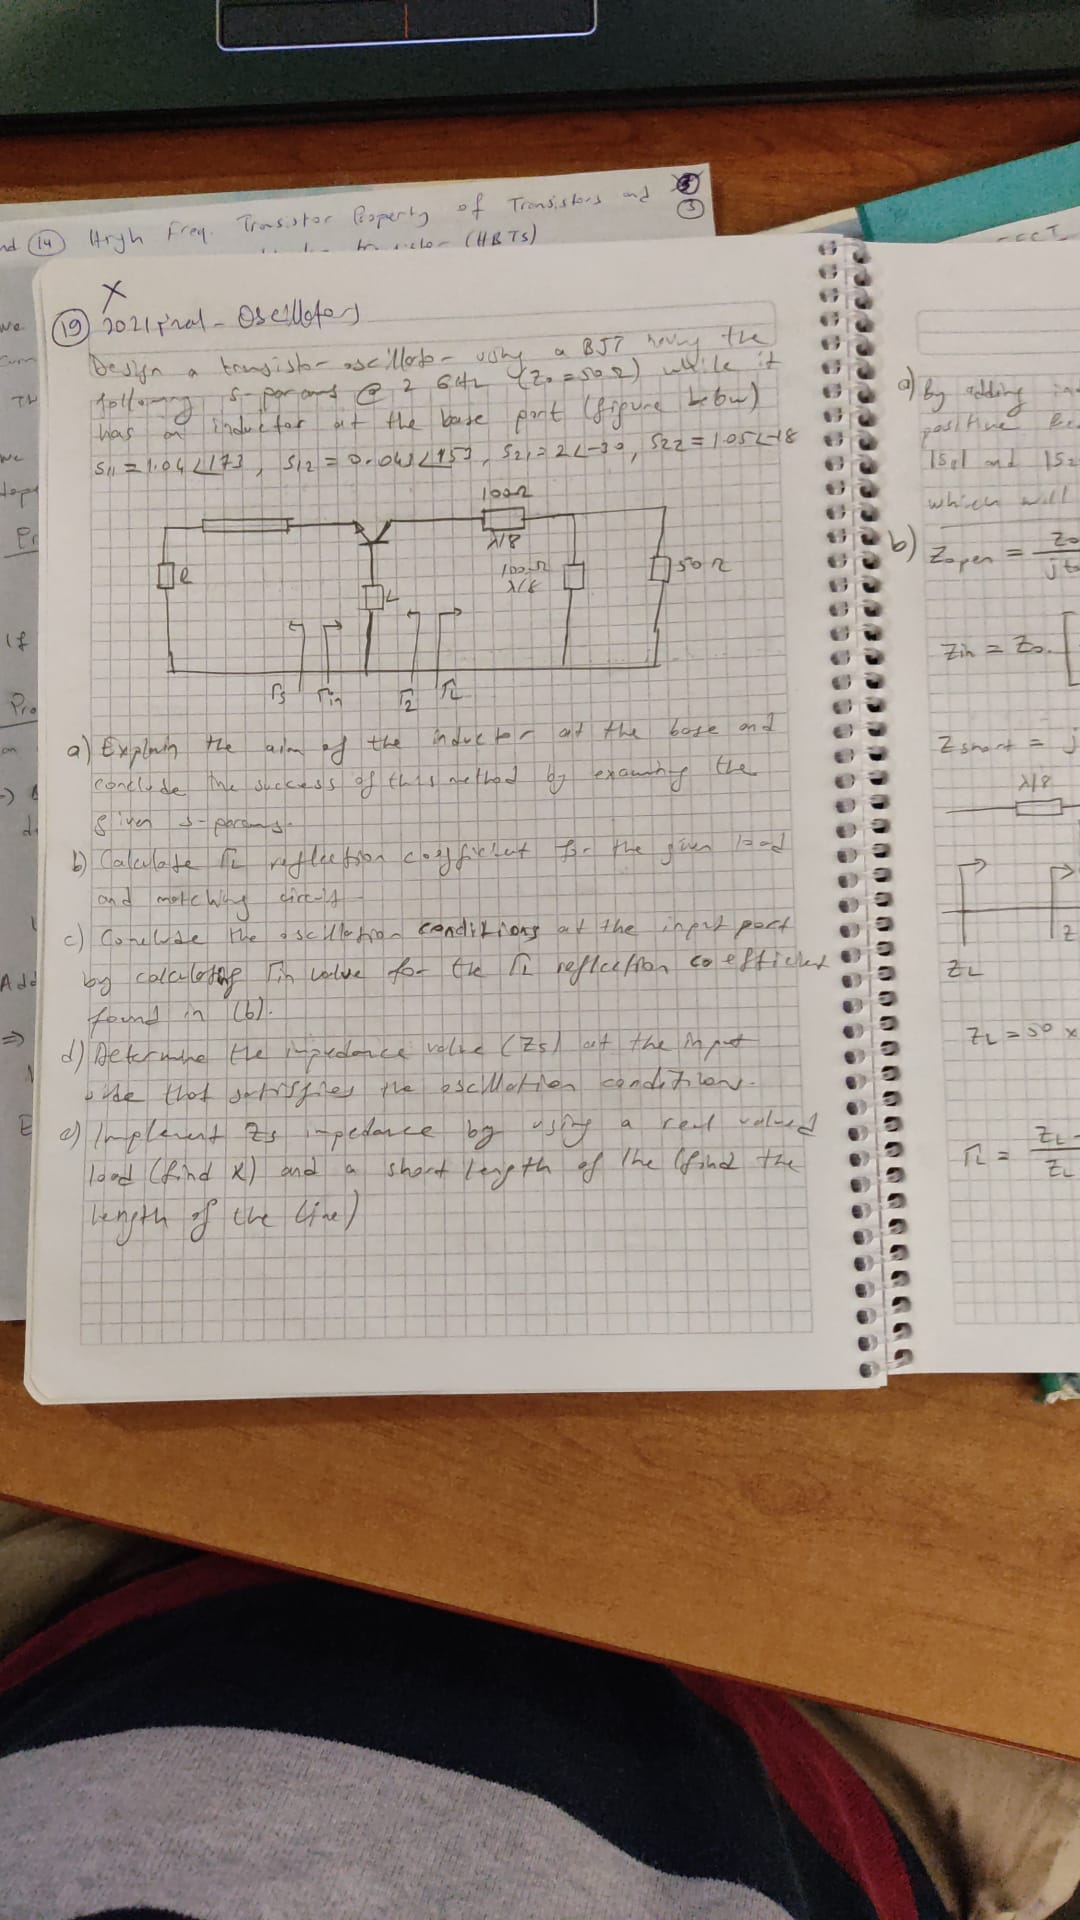 14 High Freq. Transistor Property of Transistors and
3
(HBTs)
X
19 2021 final - Oscillators
Design a transistor oscillator using a BJT having the
following s-params @ 2 GHz (Z0 = 50Ω) while it
has an inductor at the base port (figure below)
S11 = 1.04∠173, S12 = 0.043∠153, S21 = 2∠-30, S22 = 1.05∠-18
100Ω
λ/8
100Ω
λ/8
50Ω
L
Γs Γin Γ2 ΓL
a) Explain the aim of the inductor at the base and
conclude the success of this method by examining the
given s-params.
b) Calculate ΓL reflection coefficient for the given load
and matching circuit
c) Conclude the oscillation conditions at the input port
by calculating Γin value for the ΓL reflection coefficient
found in (b).
d) Determine the impedance value (Zs) at the input
side that satisfies the oscillation conditions.
e) Implement Zs impedance by using a real valued
load (find x) and a short length of line (find the
length of the line)
a) By adding
positive
and
which will
b) Zopen =
Zin = Z0.
Zshort = j
λ/8
ZL
ZL = 50 x
ΓL =